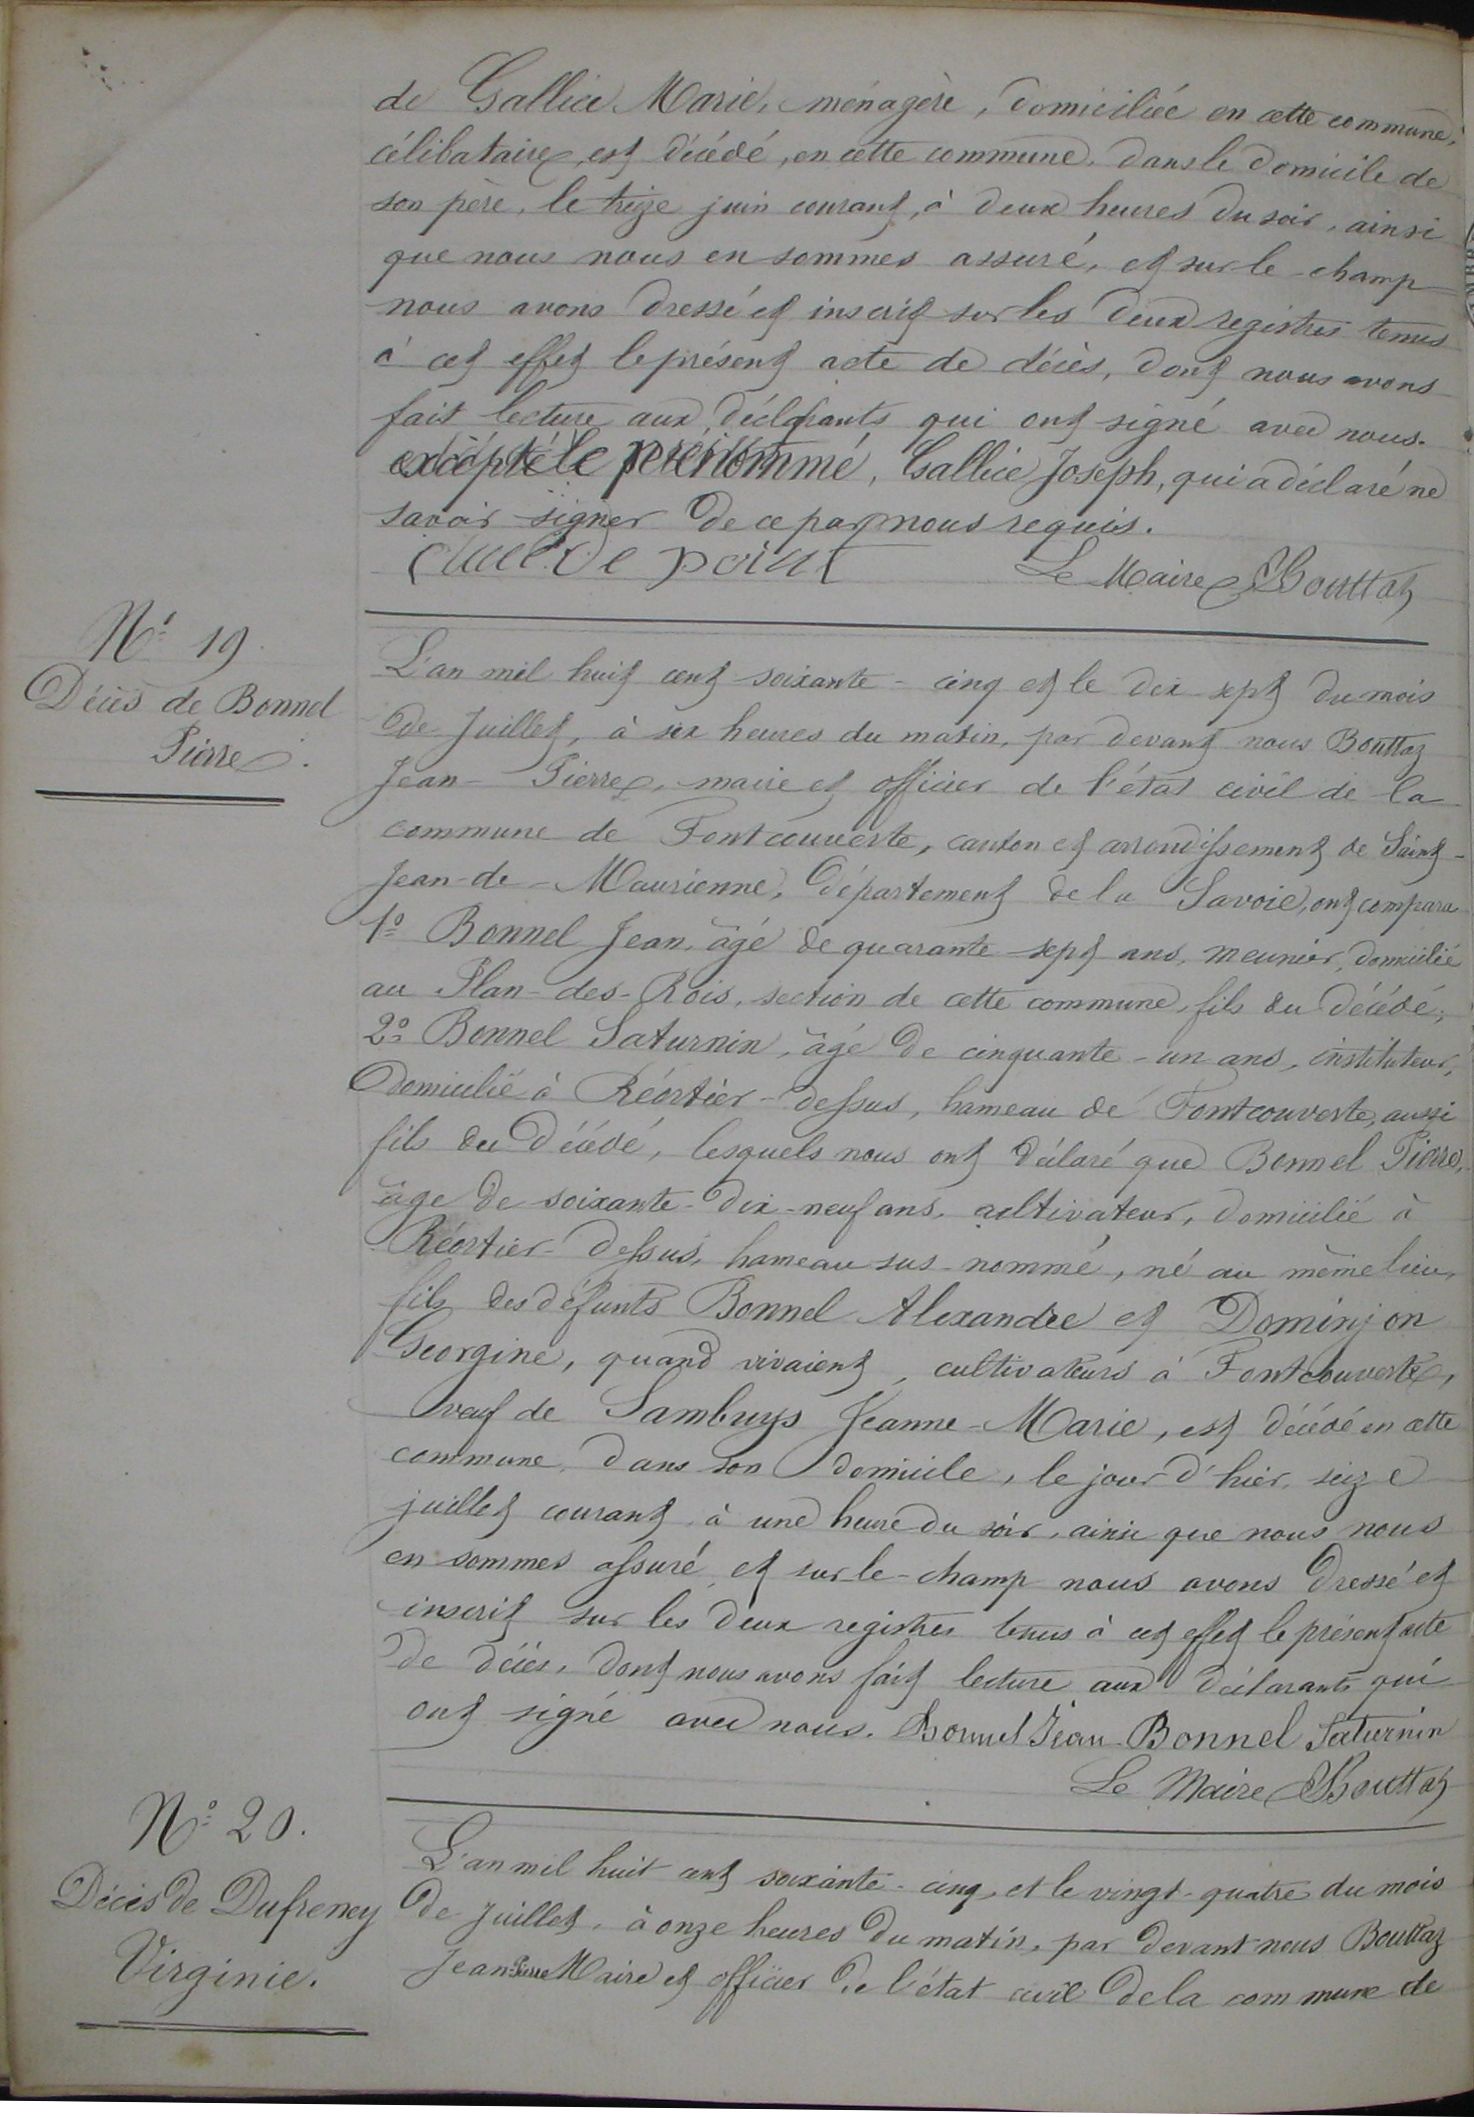 de Gallice Marie, ménagère, domiciliée en cette commune,
célibataire, est décédé, en cette commune, dans le domicile de
son père, le treize juin courant, à deux heures du soir, ainsi
que nous nous en sommes assuré, et sur-le-champ
nous avons dressé et inscrit sur les deux registres tenus
à cet effet le présent acte de décès, dont nous avons
fait lecture aux déclarants qui ont signé avec nous.
excepté le prénommé, Gallice Joseph, qui a déclaré ne
savoir signer de ce par nous requis.
Le Maire Bouttaz
N° 19
Décès de Bonnel
Pierre.
L'an mil huit cent soixante-cinq et le dix sept du mois
de Juillet, à six heures du matin, par devant nous Bouttaz
Jean-Pierre, maire et officier de l'état civil de la
commune de Fontcouverte, canton et arrondissement de Saint-
Jean-de-Maurienne, département de la Savoie, ont comparu
1° Bonnel Jean, âgé de quarante-sept ans, meunier, domicilié
au Plan-des-Rois, section de cette commune, fils du décédé;
2° Bonnel Saturnin, âgé de cinquante-un ans, instituteur,
domicilié à Réortier-dessus, hameau de Fontcouverte, aussi
fils du décédé, lesquels nous ont déclaré que Bonnel Pierre,
âgé de soixante-dix-neuf ans, cultivateur, domicilié à
Réortier-dessus, hameau sus-nommé, né au même lieu,
fils des défunts Bonnel Alexandre et Dominjon
Georgine, quand vivaient, cultivateurs à Fontcouverte,
veuf de Sambuys Jeanne-Marie, est décédé en cette
commune, dans son domicile, le jour d'hier, seize
juillet courant, à une heure du soir, ainsi que nous nous
en sommes assuré et sur-le-champ nous avons dressé et
inscrit sur les deux registres tenus à cet effet le présent acte
de décès, dont nous avons fait lecture aux déclarants qui
ont signé avec nous. Bonnel Jean Bonnel Saturnin
Le Maire Bouttaz
N° 20.
Décès de Dufreney
Virginie.
L'an mil huit cent soixante-cinq, et le vingt-quatre du mois
de Juillet, à onze heures du matin, par devant nous Bouttaz
Jean Pierre Maire et officier de l'état civil de la commune de